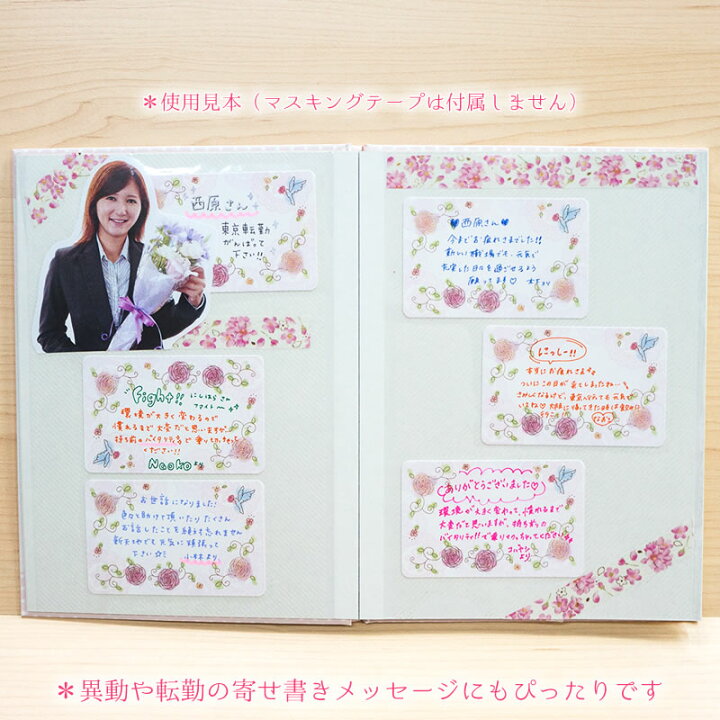 ＊使用見本（マスキングテープは付属しません）
西原さん
東京転勤
がんばって
下さい!!
Fight!!
にしはら さん
ファイト〜
環境が大きく変わるので
慣れるまで大変だと思いますが
持ち前のバイタリティーで乗り
ください!!
Naoko
お世話になりました!
色々と助けて頂いたり たくさん
お話ししたことを 忘れません
新天地でも 元気に 頑張って
下さい☆
小林より
♥西原さん♥
今までお疲れさまでした!!
新しい職場でも、元気で
充実した日々を過ごせるよう
願ってます♡
にっしー!!
本当にお疲れさまです
ついにこの日が来てしましたね…
さみしくなるけど、東京へ行っても元気で
いてね♡
なおこ
ありがとうございました♡
環境が大きく変わって、慣れるまで
大変だと思いますが、持ち前の
バイタリティ!!で乗りきっちゃってください
より
＊異動や転勤の寄せ書きメッセージにもぴったりです